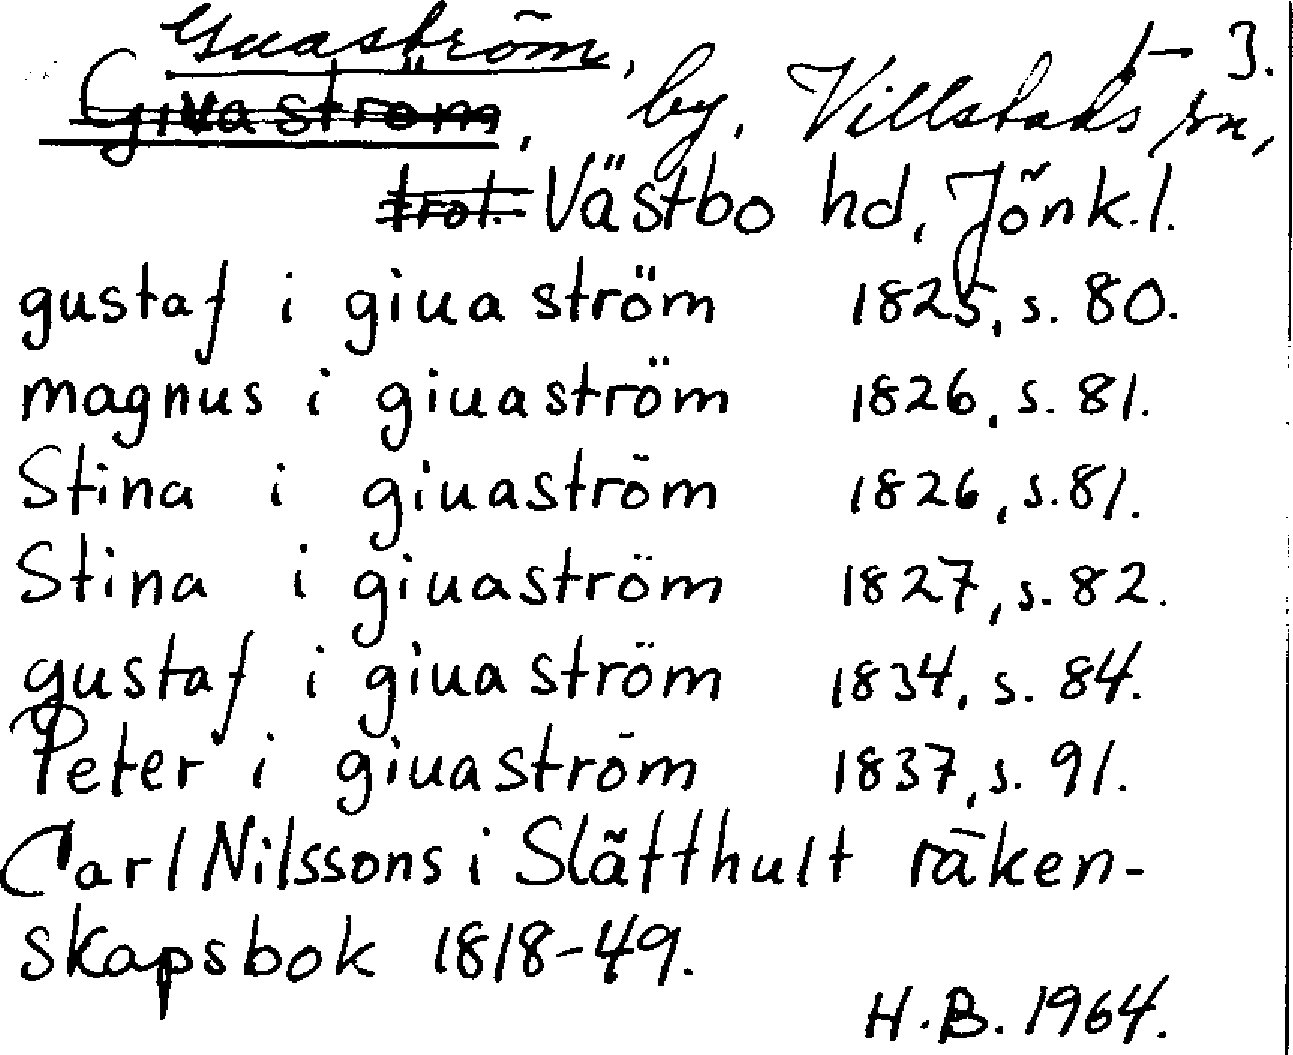 Guaström, 1-3.
Givaström, by. Villstads sn,
trol. Västbo hd, Jönk.l.
gustaf i giua ström 1825, s. 80.
magnus i giuaström 1826, s. 81.
Stina i giuaström 1826, s. 81.
Stina i giuaström 1827, s. 82.
gustaf i giua ström 1834, s. 84.
Peter i giuaström 1837, s. 91.
Carl Nilssons i Slätthult räken-
skapsbok 1818-49.
H.B. 1964.